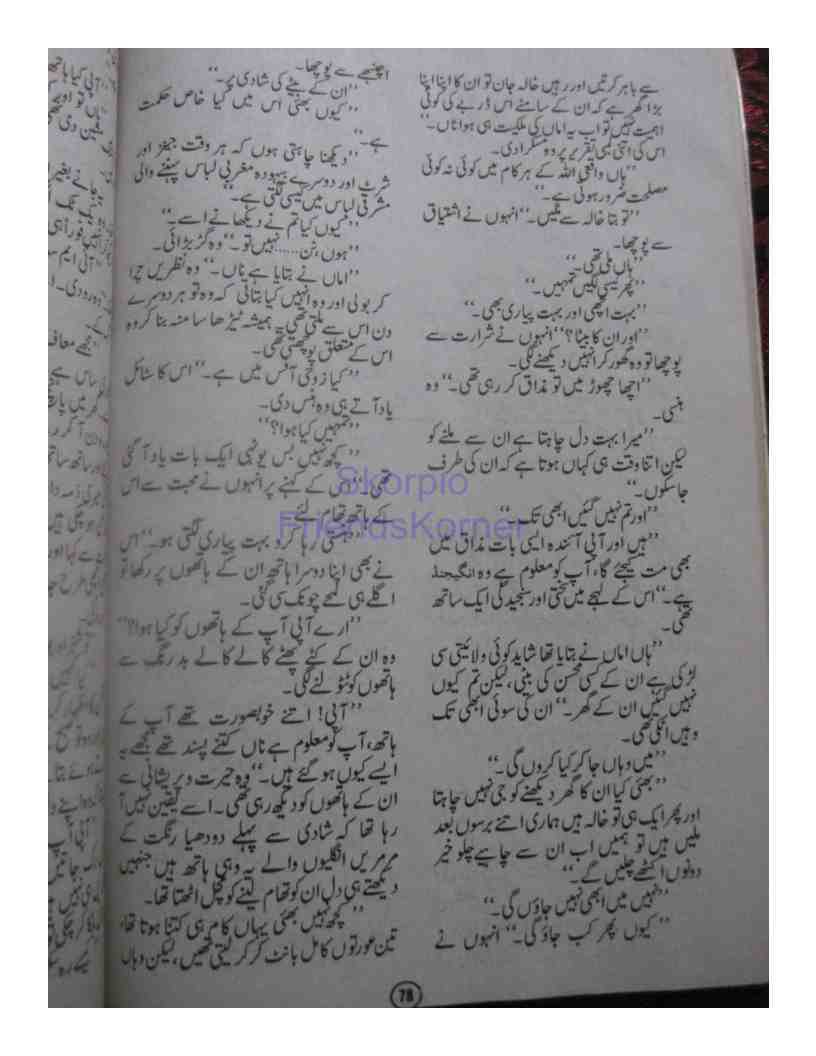 سے باہر کرتیں اور رہیں خالہ جان تو ان کا اپنا اپنا
بڑا گھر ہے کہ ان کے سامنے اس ڈربے کی کوئی
اہمیت نہیں تو اب یہ اماں کی ملکیت ہی ہوا ناں۔‘‘
اس کی اتنی لمبی تقریر پر وہ مسکرا دی۔
’’ہاں واقعی اللہ کے ہر کام میں کوئی نہ کوئی
مصلحت ضرور ہوتی ہے۔‘‘
’’تو بتا خالہ سے ملیں۔‘‘ انہوں نے اشتیاق
سے پوچھا۔
’’ہاں ملی تھی۔‘‘
’’پھر کیسی لگیں تمہیں۔‘‘
’’بہت اچھی اور بہت پیاری بھی۔‘‘
’’اور ان کا بیٹا؟‘‘ انہوں نے شرارت سے
پوچھا تو وہ گھور کر انہیں دیکھنے لگی۔
’’اچھا چھوڑ میں تو مذاق کر رہی تھی۔‘‘ وہ
ہنسی۔
’’میرا بہت دل چاہتا ہے ان سے ملنے کو
لیکن اتنا وقت ہی کہاں ہوتا ہے کہ ان کی طرف
جا سکوں۔‘‘
’’اور تم نہیں گئیں ابھی تک۔‘‘
’’ہیں اور آپی آئندہ ایسی بات مذاق میں
بھی مت کیجئے گا، آپ کو معلوم ہے وہ انگیجڈ
ہے۔‘‘ اس کے لہجے میں سختی اور سنجیدگی ایک ساتھ
تھی۔
’’ہاں اماں نے بتایا تھا شاید کوئی ولائیتی سی
لڑکی ہے ان کے کسی محسن کی بیٹی، لیکن تم کیوں
نہیں گئیں ان کے گھر۔‘‘ ان کی سوئی ابھی تک
وہیں اٹکی تھی۔
’’میں وہاں جا کر کیا کروں گی۔‘‘
’’بھئی کیا ان کا گھر دیکھنے کو جی نہیں چاہتا
اور پھر ایک ہی تو خالہ ہیں ہماری اتنے برسوں بعد
ملیں ہیں تو ہمیں اب ان سے چاہیے چلو خیر
دونوں اکٹھے چلیں گے۔‘‘
’’نہیں میں ابھی نہیں جاؤں گی۔‘‘
’’کیوں پھر کب جاؤ گی۔‘‘ انہوں نے
اچنبھے سے پوچھا۔
’’ان کے بیٹے کی شادی پر۔‘‘
’’کیوں بھئی اس میں کیا خاص حکمت
ہے۔‘‘
’’دیکھنا چاہتی ہوں کہ ہر وقت جینز اور
شرٹ اور دوسرے بیہودہ مغربی لباس پہننے والی
مشرقی لباس میں کیسی لگتی ہے۔‘‘
’’کیوں کیا تم نے دیکھا ہے اسے۔‘‘
’’ہوں، نن......نہیں تو۔‘‘ وہ گڑبڑائی۔
’’اماں نے بتایا ہے ناں۔‘‘ وہ نظریں چرا
کر بولی اور وہ انہیں کیا بتاتی کہ وہ تو ہر دوسرے
دن اس سے ملتی تھی۔ ہمیشہ ٹیڑھا سا منہ بنا کر وہ
اس کے متعلق پوچھتی تھی۔
’’کیا زوحی آفس میں ہے۔‘‘ اس کا سٹائل
یاد آتے ہی وہ ہنس دی۔
’’تمہیں کیا ہوا؟‘‘
’’کچھ نہیں بس یونہی ایک بات یاد آ گئی
تھی۔‘‘ اس کے کہنے پر انہوں نے محبت سے اس
کے ہاتھ تھام لئے۔
’’ہنستی رہا کرو بہت پیاری لگتی ہو۔‘‘ اس
نے بھی اپنا دوسرا ہاتھ ان کے ہاتھوں پر رکھا تو
اگلے ہی لمحے چونک سی گئی۔
’’ارے آپی آپ کے ہاتھوں کو کیا ہوا؟‘‘
وہ ان کے کٹے پھٹے کالے کالے بدرنگ سے
ہاتھوں کو ٹٹولنے لگی۔
’’آپی! اتنے خوبصورت تھے آپ کے
ہاتھ، آپ کو معلوم ہے ناں کتنے پسند تھے مجھے یہ
ایسے کیوں ہو گئے ہیں۔‘‘ وہ حیرت و پریشانی سے
ان کے ہاتھوں کو دیکھ رہی تھی۔ اسے یقین نہیں آ
رہا تھا کہ شادی سے پہلے دودھیا رنگت کے
مرمریں انگلیوں والے یہ وہی ہاتھ ہیں جنہیں
دیکھتے ہی دل ان کو تھام لینے کو مچل اٹھتا تھا۔
’’کچھ نہیں بھئی یہاں کام ہی کتنا ہوتا تھا،
تین عورتوں کا مل بانٹ کر کر لیتی تھیں، لیکن وہاں
78
Skorpio
FriendsKorner